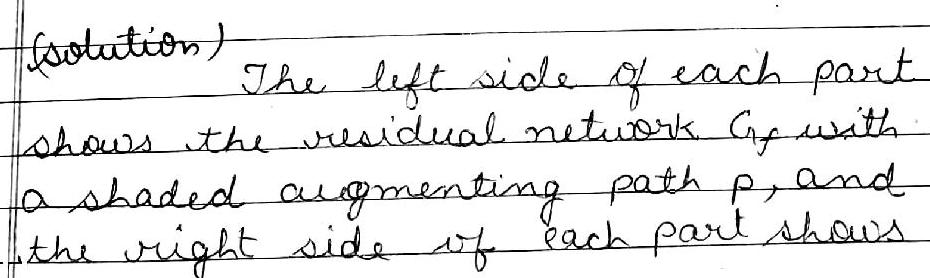 (solution)
The left side of each part
shows the residual network Gf with
a shaded augmenting path p, and
the right side of each part shows